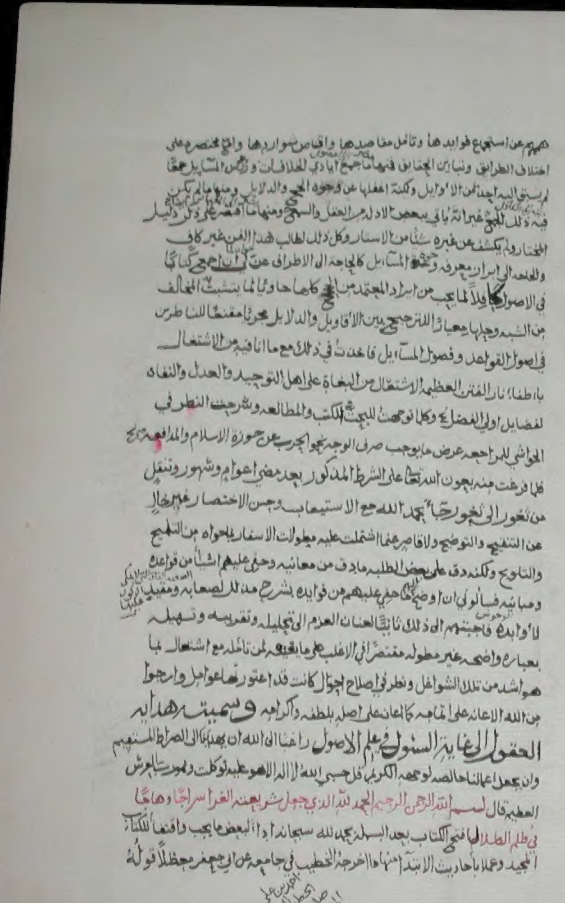 هممهم عن استجماع فوايدها وتامل مقاصدها واقتناص شواردها واتوا مختصره على
اختلاف الطرايق وتباين الحقايق فمنها ما جمع ايادي الخلافات ورؤس المسآيل جمعًا
لم يسبق اليه احد من الاوايل ولكنه اغفلها عن وجوه الحجج والدلايل ومنها ما لم يكن
فيه ذلك الجمع غير انه ياتي ببعض الادله من العقل والسمع ومنها ما اقتصر على ذكر دليل
المختار ولم يكشف عن غيره شيئًا من الاستار وكل ذلك لطالب هذا الفن غير كاف
المسآيل كالحاجه الى الاطراف عن لي ان اجمع كتابًا
في الاصول كافلًا لما يجب من ايراد المعتمد من الحجج كلها حاويًا لما يتشبث المخالف
من الشبه وجعلها معيارًا للترجيح بين الاقاويل والدلايل محرمًا مقنعًا للناظرين
في اصول القواعد وفصول المسآيل فاخذت في ذلك مع ما انا فيه من الاشتغال
باطفاء نار الفتن العظيمه الاشتعال من البغاة على اهل التوحيد والعدل والنفاه
لفضايل اولي الفضل وكلما توجهت للبحث الكتب والمطالعه وسرحت النظر في
الحواشي للمراجعه عرض ما يوجب صرف الوجه نحو الحرب عن حوزة الاسلام والمدافعه
فلما فرغت منه بعون الله تعالى على الشرط المذكور بعد مضي اعوام وشهور وتنقل
من ثغور الى ثغور جآء بحمد الله مع الاستيعاب وحسن الاختصار غير خالٍ
عن التنقيح والتوضيح ولا قاصر عما اشتملت عليه مطولات الاسفار بما حواه من التلميح
والتلويح ولكنه دق على بعض الطلبه ما دق من معانيه وخفي عليهم اشيآء من قواعده
ومبانيه فسألوني ان اوضح ما خفي عليهم من فوايده بشرح مذلل لصعابه ومقيد
لاوابده فاجبتهم الى ذلك ثانيًا لعنان العزم الى تحليله وتقريبه وتسهيله
بعباره واضحه غير مطوله مقتصرًا في الاغلب على ما لمن تامله مع اشتغال بما
هو اشد من تلك الشواغل ونظر في اصلاح احوال كانت قد اعتورتها عوامل وارجوا
من الله الاعانه على اتمامه كما اعان على اصله بلطفه واكرامه وسميته هدايه
العقول الى غاية السئول في علم الاصول راغبًا الى الله ان يهدينا الى الصراط المستقيم
وان يجعل اعمالنا خالصه لوجهه الكريم قل حسبي الله لا اله الا هو عليه توكلت وهو رب العرش
العظيم قال بسم الله الرحمن الرحيم الحمد لله الذي جعل شريعته الغرا سراجًا وهاجًا
في ظلم الضلال افتتح الكتاب بعد البسمله بحمد لله سبحانه ادآءً لبعض ما يجب واقتفآءً للكتاب
المجيد وعملًا باحاديث الابتدآء منها ما اخرجه الخطيب في جامعه عن ابي جعفر معظلًا قوله